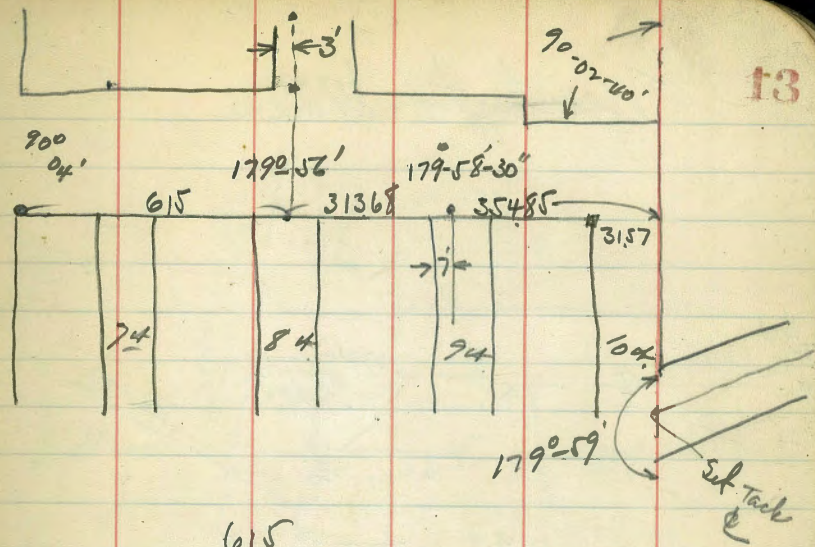 13
3'
90-02-40'
90° 04'
179°-56'
179-58'-30"
615
31368
35485
3157
7'
74
84
94
104
179°-59'
Set Tack
℄
615